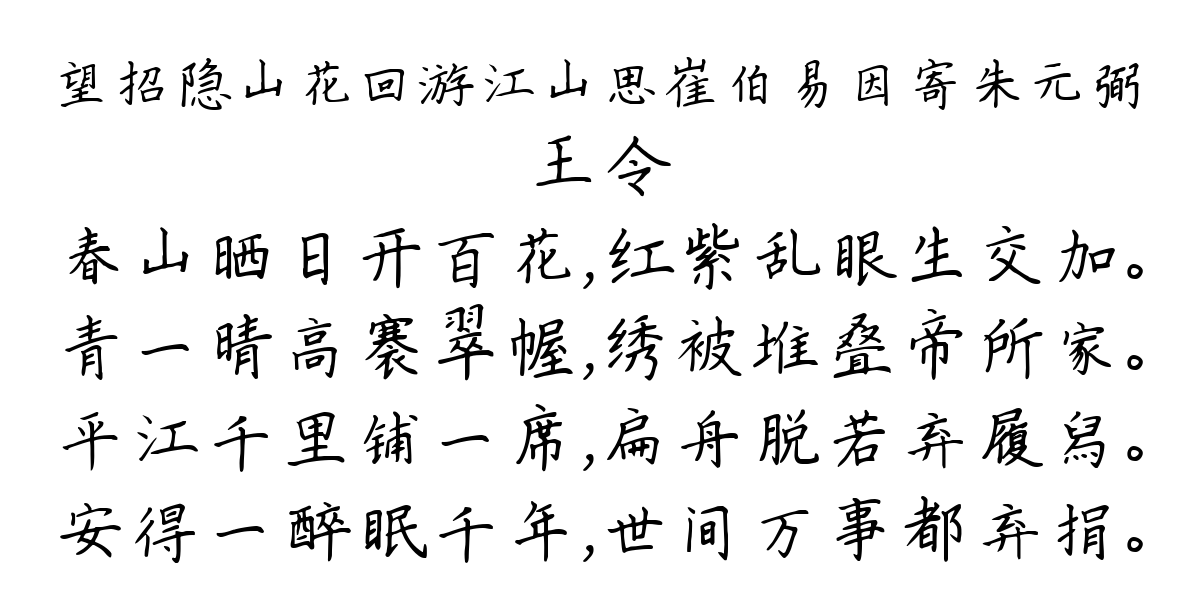 望招隐山花回游江山思崔伯易因寄朱元弼
王令
春山晒日开百花,红紫乱眼生交加。
青一晴高褰翠幄,绣被堆叠帝所家。
平江千里铺一席,扁舟脱若弃履舄。
安得一醉眠千年,世间万事都弃捐。